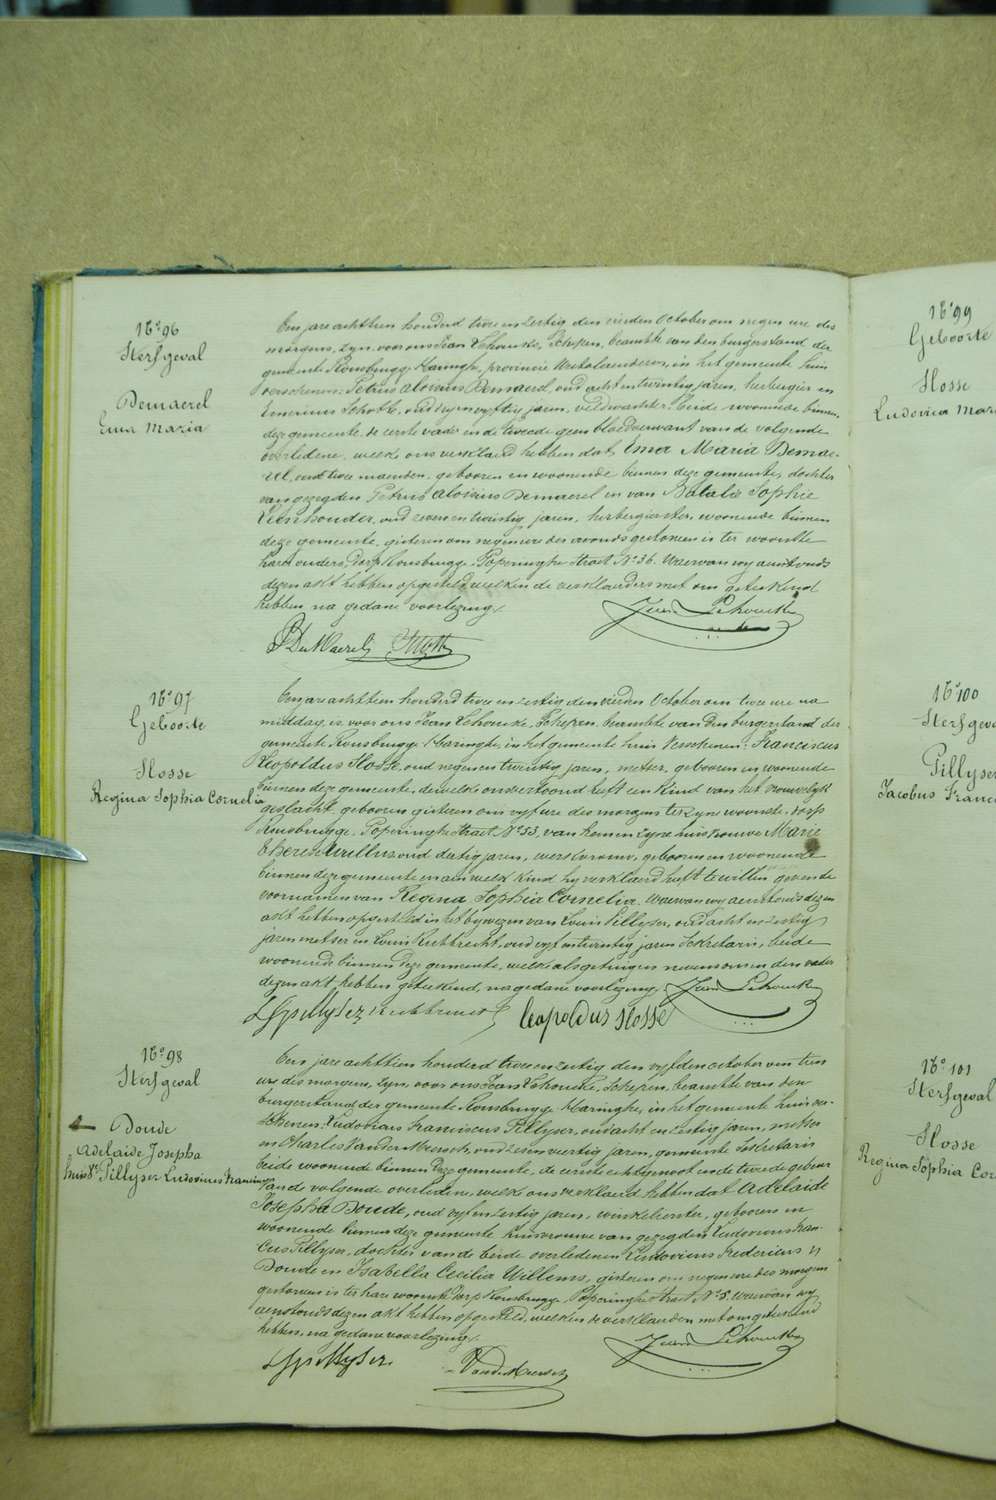 N° 96
Sterfgeval
Demaerel
Ema Maria
Een jare achttien honderd twee en zestig den vierden October om negen ure des
morgens, zyn voor ons Jean Lehoucke, Schepen, beambte van den burgerstand der
gemeente Rousbrugge Haringhe, provincie Westvlaenderen, in het gemeente huis
verschenen: Petrus Aloisius Demaerel, oud acht en twintig jaren, herbergier en
Emerinus Schotte, oud zes en vyftig jaren, veldwachter. Beide woonende binnen
deze gemeente, de eerste vader en de tweede geen bloedverwant van de volgende
overledene, welke ons verklaerd hebben dat Ema Maria Demae-
rel, oud twee maenden, geboren en woonende binnen deze gemeente, dochter
van gezegden Petrus Aloisius Demaerel en van Natalie Sophie
oud zeven en twintig jaren, herbergierster, woonende binnen
deze gemeente, gisteren om negen ure des avonds gestorven is ter woonste
harer ouders, Dorp Rousbrugge, Poperinghe straet N° 36. Waervan wy aenstonds
dezen akt hebben opgesteld, welken de verklaerders met ons geteekend
hebben na gedane voorlezing.
Jean Lehoucke
P DeMaerel Schotte
N° 97
Geboorte
Hosse
Regina Sophia Cornelia
Een jare achttien honderd twee en zestig den vierden October om twee ure na
middag, is voor ons Jean Lehoucke, Schepen, beambte van den burgerstand der
gemeente Rousbrugge Haringhe, in het gemeente huis verschenen: Franciscus
Leopoldus Hosse, oud negen en twintig jaren, metser, geboren en woonende
binnen deze gemeente, dewelke ons vertoond heeft een kind van het vrouwelyk
geslacht, geboren gisteren om vyf ure des morgens te zyne woonste, dorp
Rousbrugge, Poperinghe straet N° 53, van hem en zyne huisvrouw Marie
Therese Willens oud dertig jaren, werkvrouw, geboren en woonende
binnen deze gemeente en aen welk kind hy verklaerd heeft te willen geven de
voornamen van Regina Sophia Cornelia. Waervan wy aenstonds dezen
akt hebben opgesteld in het bywezen van Louis Pillyser, oud acht en zestig
jaren metser en Louis Rubbrecht, oud vyf en twintig jaren Sekretaris, beide
woonende binnen deze gemeente, welke als getuigen nevens ons en den vader
dezen akt hebben geteekend, na gedane voorlezing.
Jean Lehoucke
L F pillyser L Rubbrecht Leopoldus Hosse
N° 98
Sterfgeval
Doude
Adelaide Josepha
huisv. Pillyser Ludovicus Franciscus
Een jare achttien honderd twee en zestig den vyfden october om tien
ure des morgens, zyn, voor ons Jean Lehoucke, Schepen, beambte van den
burgerstand der gemeente Rousbrugge Haringhe, in het gemeente huis ver-
schenen: Ludovicus Franciscus Pillyser, oud acht en zestig jaren, metser
en Charles Vander Meersch, oud zes en veertig jaren, gemeente Sekretaris
beide woonende binnen deze gemeente, de eerste echtgenoot en de tweede gebuer
van de volgende overledene, welke ons verklaerd hebben dat Adelaide
Josepha Doude, oud vyf en zestig jaren, winkelierster, geboren en
woonende binnen deze gemeente huisvrouw van gezegden Ludovicus Fran-
cus Pillyser, dochter van de beide overledenen Ludovicus Fredericus
Doude en Isabella Cecilia Willems, gisteren om negen ure des morgens
gestorven is ter hare woonste Dorp Rousbrugge, Poperinghe straet N° 5. Waervan wy
aenstonds dezen akt hebben opgesteld, welken de verklaerders met ons geteekend
hebben, na gedane voorlezing.
Jean Lehoucke
L F pillyser VanderMeersch
N° 99
Geboorte
Hosse
Ludovica Mar
N° 100
Sterfgeva
Pillyser
Jacobus Franc
N° 101
Sterfgeval
Hosse
Regina Sophia Cor